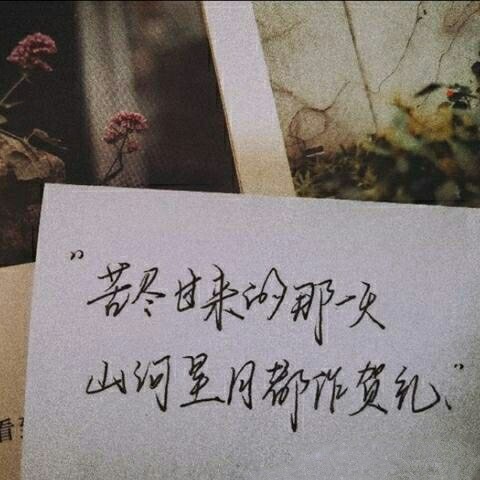 "苦尽甘来的那一天
山河星月都作贺礼"
看